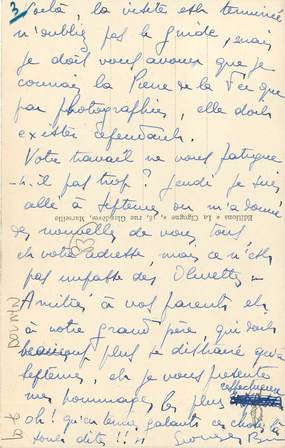 3 Voilà, la visite est terminée
n'oubliez pas le guide, mais
je dois vous avouer que je
connais la Pierre de la Fée que
par photographies, elle doit
exister cependant.
Votre travail ne vous fatigue
-t-il pas trop? Jeudi je suis
allé à Septèmes on m'a donné
des nouvelles de vous tous
et votre adresse, mais ce n'est
pas impasse des Olivettes -
Amitié à vos parents et
à votre grand père, qui doit
beaucoup plus se distraire qu'à
Septèmes, et je vous présente
mes hommages les plus affectueux
oh! qu'en termes galants ces choses
sont dites!!!
Editions « La Cigogne », rue Glandevès, Marseille